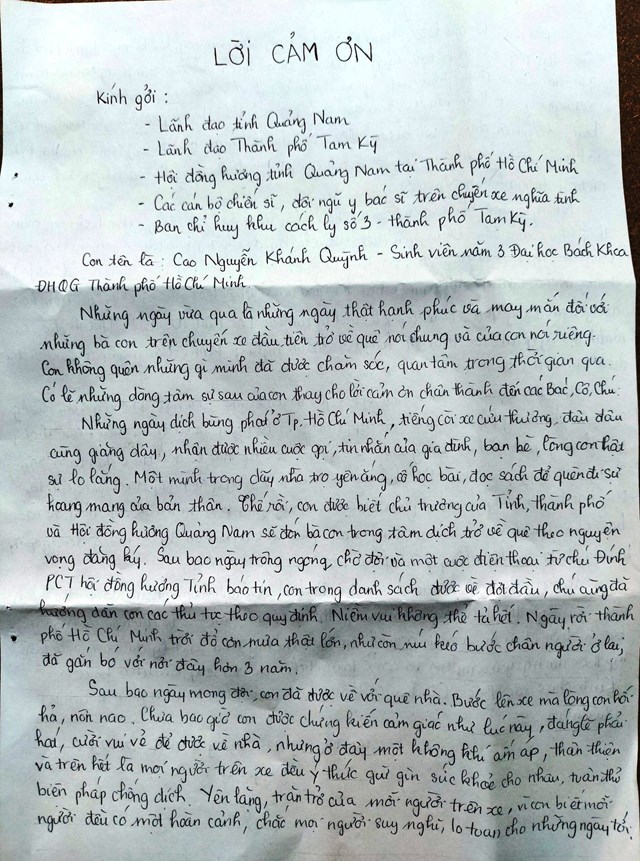 LỜI CẢM ƠN
Kính gởi :
- Lãnh đạo tỉnh Quảng Nam
- Lãnh đạo Thành phố Tam Kỳ
- Hội đồng hương tỉnh Quảng Nam tại Thành phố Hồ Chí Minh
- Các cán bộ chiến sĩ, đội ngũ y bác sĩ trên chuyến xe nghĩa tình
- Ban chỉ huy khu cách ly số 3 - thành phố Tam Kỳ.
Con tên là : Cao Nguyễn Khánh Quỳnh - Sinh viên năm 3 Đại học Bách Khoa
ĐHQG Thành phố Hồ Chí Minh
Những ngày vừa qua là những ngày thật hạnh phúc và may mắn đối với
những bà con trên chuyến xe đầu tiên trở về quê nói chung và của con nói riêng.
Con không quên những gì mình đã được chăm sóc, quan tâm trong thời gian qua.
Có lẽ những dòng tâm sự sau của con thay cho lời cảm ơn chân thành đến các Bác, Cô, Chú.
Những ngày dịch bùng phát ở Tp. Hồ Chí Minh, tiếng còi xe cứu thương đâu đâu
cũng giăng dây, nhận được nhiều cuộc gọi, tin nhắn của gia đình, bạn bè, lòng con thật
sự lo lắng. Một mình trong dãy nhà trọ yên ắng, cố học bài, đọc sách để quên đi sự
hoang mang của bản thân. Thế rồi, con được biết chủ trương của Tỉnh, thành phố
và Hội đồng hương Quảng Nam sẽ đón bà con trong tâm dịch trở về quê theo nguyện
vọng đăng ký. Sau bao ngày trông ngóng, chờ đợi và một cuộc điện thoại từ chú Đính
PCT hội đồng hương Tỉnh báo tin, con trong danh sách được về đợt đầu, chú cũng đã
hướng dẫn con các thủ tục theo quy định. Niềm vui không thể tả hết. Ngày rời thành
phố Hồ Chí Minh trời đổ cơn mưa thật lớn, như còn níu kéo bước chân người ở lại,
đã gắn bó với nơi đây hơn 3 năm.
Sau bao ngày mong đợi, con đã được về với quê nhà. Bước lên xe mà lòng con hối
hả, nôn nao. Chưa bao giờ con được chứng kiến cảm giác như lúc này, đáng lẽ phải
hát, cười vui vẻ để được về nhà, nhưng ở đây một không khí ấm áp, thân thiện
và trên hết là mọi người trên xe đều ý thức giữ gìn sức khoẻ cho nhau, tuân thủ
biện pháp chống dịch. Yên lặng, trằn trở của mỗi người trên xe, vì con biết mỗi
người đều có một hoàn cảnh, chắc mọi người suy nghĩ, lo toan cho những ngày tới.